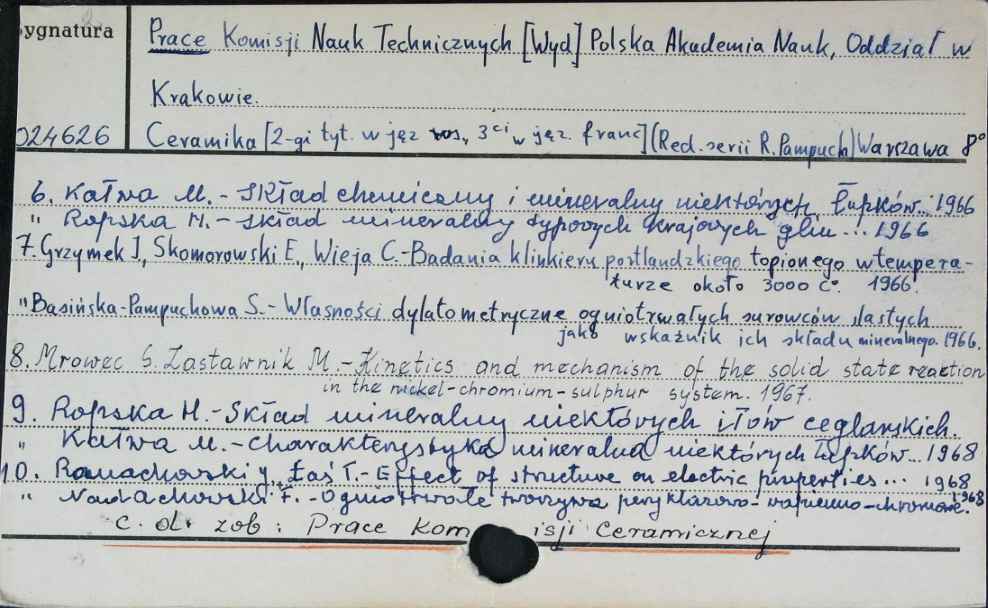 ygnatura
Prace Komisji Nauk Technicznych [Wyd] Polska Akademia Nauk, Oddział w
Krakowie.
024626
Ceramika [2-gi tyt. w jęz ros, 3ci w jęz. franc] (Red. serii R. Pampuch) Warszawa 8°
6. Kałwa M. - Skład chemiczny i mineralny niektórych łupków... 1966
" Ropska H. - Skład mineralny typowych krajowych glin ... 1966
7. Grzymek J., Skomorowski E., Wieja C. - Badania klinkieru portlandzkiego topionego w tempera-
turze około 3000 C°. 1966.
" Basińska-Pampuchowa S. - Własności dylatometryczne ogniotrwałych surowców ilastych
jako wskaźnik ich składu mineralnego. 1966.
8. Mrowec S. Zastawnik M. - Kinetics and mechanism of the solid state reaction
in the nickel-chromium-sulphur system. 1967.
9. Ropska H. - Skład mineralny niektórych iłów ceglarskich.
" Kałwa M. - Charakterystyka mineralna niektórych łupków... 1968
10. Romachowski J, Łaś T. - Effect of structure on electric properties ... 1968
" Nadachowski F. - Ogniotrwałe tworzywa peryklazowo-wapienno-chromowe. 1968
c. d. zob: Prace Komisji Ceramicznej